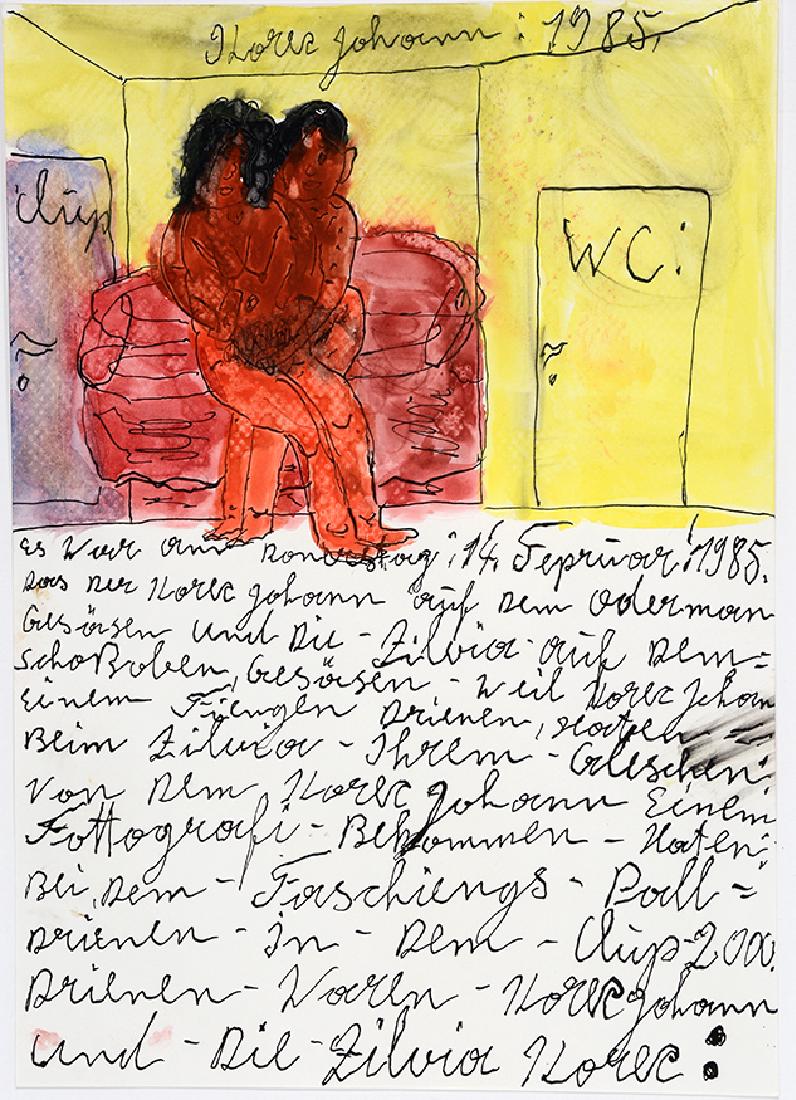 Korec Johann: 1985.
Clup
WC:
es War am Donerstag: 14. Fepruar: 1985.
Das Der Korec Johann auf Dem Oderman
Gesösen und Die - Zilvia auf Dem =
Schoßoben, Gesösen - Weil Korec Johan
Einem Fiengen Drienen, Haten =
Beim Zilvia - Ihrem -
Von Dem Korec Johann Einem
Fottografi - Bekommen - Haten:
Bei, Dem - Faschiengs - Pall =
Drienen - In - Dem - Clup-2000.
Drienen - Waren - Korec Johann
und - Die - Zilvia Korec: